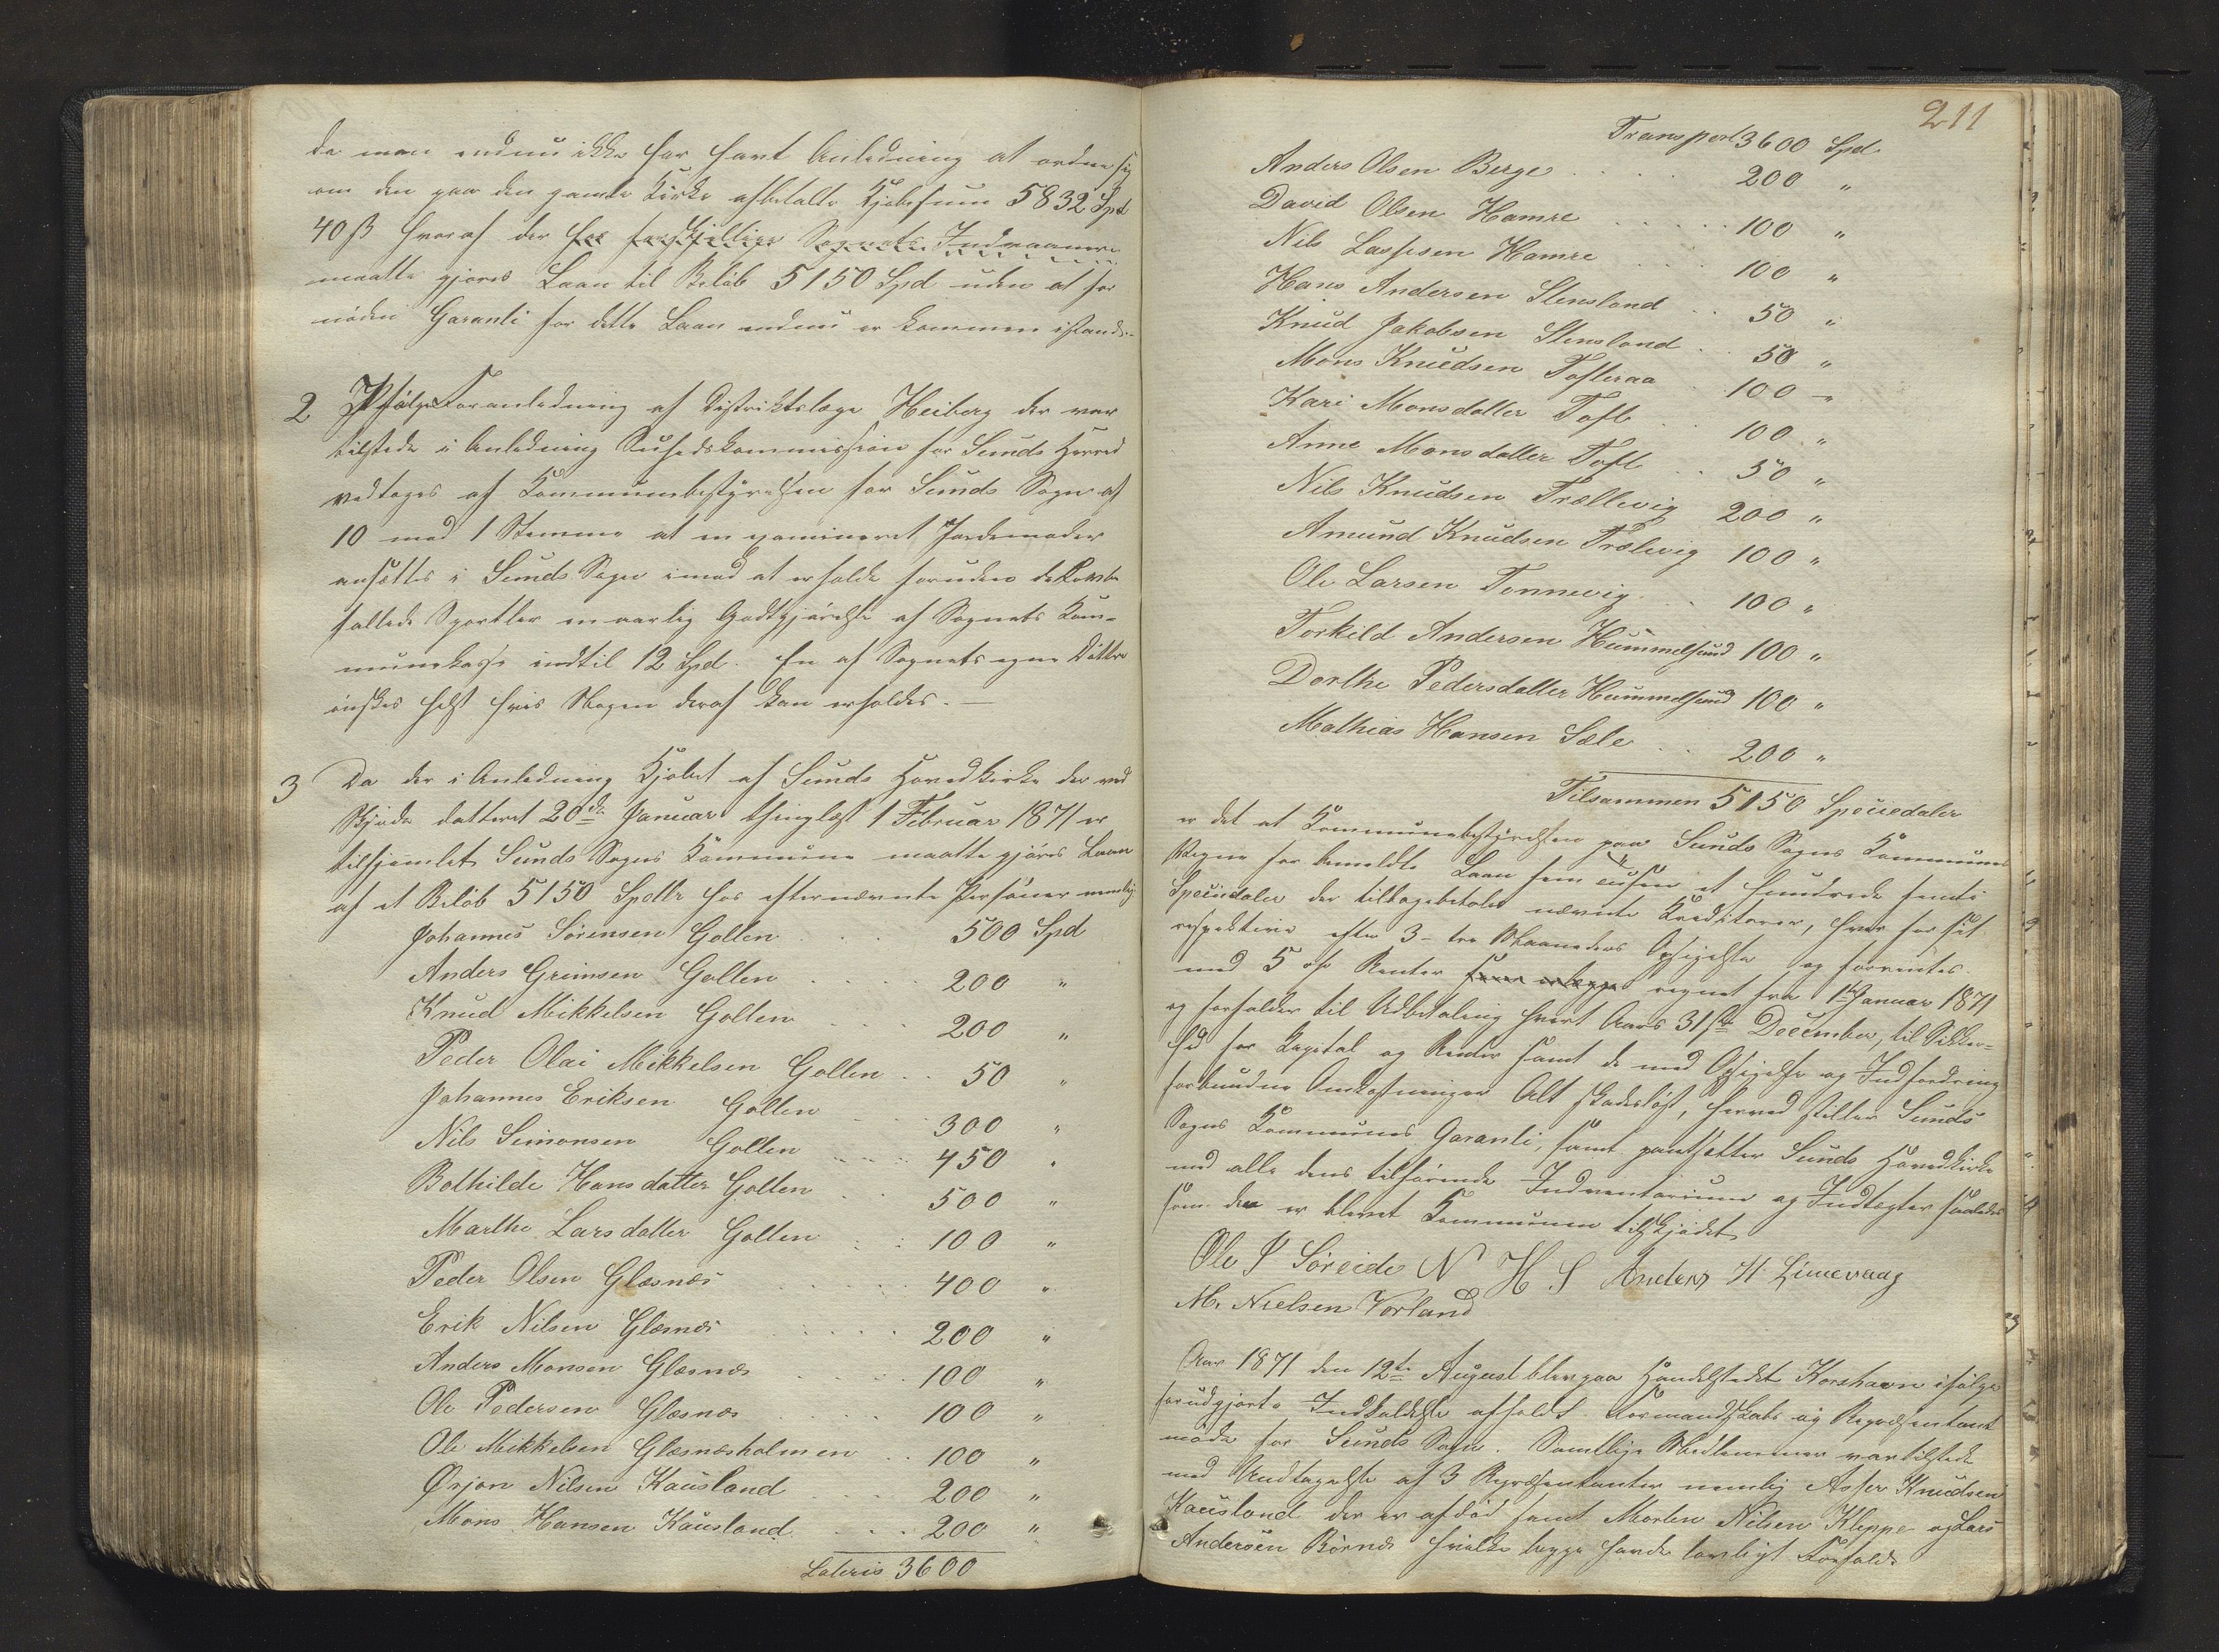 da man endnu ikke har havt Anledning at ordne sig
om den paa den gamle Kirke afbetalte Kjøbesum 5832 Spd
40 ß hvoraf der hos forskjellige Sognets Indvaanere
maatte gjøres Laan til Beløb 5150 Spd uden at for
nøden Garanti for dette Laan endnu er kommen istand.-
2 Ifølge Foranledning af Distriktslæge Heiberg der var
tilstede i Anledning Sundhedskommission for Sunds Herred
vedtoges af Kommunebestyrelsen for Sunds Sogn af
10 mod 1 Stemme at en examineret Jordemoder
ansættes i Sunds Sogn imod at erholde foruden de
fallede Sportler en aarlig Godtgjørelse af Sognets Kom-
munekasse indtil 12 Spd. En af Sognets egne Døttre
ønskes helst hvis Nogen deraf kan erholdes. —
3 Da der i Anledning Kjøbet af Sunds Hovedkirke der ved
Skjøde datteret 20de Januar thinglæst 1 Februar 1871 er
tilhjemlet Sunds Sogns Kommune maatte gjøres Laan
af et Beløb 5150 Spdlr hos efternævnte Personer nemlig
Johannes Sørensen Golten 500 Spd
Anders Grimsen Golten 200 "
Knud Mikkelsen Golten 200 "
Peder Olai Mikkelsen Golten 50 "
Johannes Eriksen Golten 300 "
Nils Simonsen Golten 450 "
Bothilde Hansdatter Golten 500 "
Marthe Larsdatter Golten 100 "
Peder Olsen Glæsnæs 400 "
Erik Nilsen Glæsnæs 200 "
Anders Monsen Glæsnæs 100 "
Ole Pedersen Glæsnæs 100 "
Ole Mikkelsen Glæsnæsholmen 100 "
Ørjan Nilsen Kausland 200 "
Mons Hansen Kausland 200 "
Lateris 3600
211
Transport 3600 Spd
Anders Olsen Berge 200 "
David Olsen Hamre 100 "
Nils Lassesen Hamre 100 "
Hans Andersen Stensland 50 "
Knud Jakobsen Stensland 50 "
Mons Knudsen Tofteraa 100 "
Kari Monsdatter Toft 100 "
Anne Monsdatter Toft 50 "
Nils Knudsen Trællevig 200 "
Amund Knudsen Trælevig 100 "
Ole Larsen Tonnevig 100 "
Torkild Andersen Hummelsund 100 "
Dorthe Pedersdatter Hummelsund 100 "
Mathias Hansen Sæle 200 "
Tilsammen 5150 Speciedaler
er det at Kommunebestyrelsen paa Sunds Sogns Kommunes
Vegne for bemeldte Laan fem tusen et hundrede femti
Speciedaler der tilbagebetales nævnte Kreditorer, hver for sit
respektive efter 3 - tre Maaneders Opsigelse og forrentes
med 5 % Renter regnet fra 1ste Januar 1871
og forfalder til Udbetaling hvert Aars 31ste December, til Sikker-
hed for Kapital og Renter samt de med Opsigelse og Indfordring
forbundne Omkostninger Alt skadesløst, herved stiller Sunds
Sogns Kommunes Garanti, samt pantsætter Sunds Hovedkirke
med alle dens tilhørende Indventarium og Indtægter saaledes
som den er blevet Kommunen tilskjødet
Ole P Søreide N H S Anders H Limevaag
M. Nielsen Vorland
Aar 1871 den 12te August blev paa Handelstedet Korshavn ifølge
forudgjort Indkaldelse afholdt Formandskabs og Repræsentant
møde for Sunds Sogn. Samtlige Medlemmer var tilstede
med Undtagelse af 3 Repræsentanter nemlig Asser Knudsen
Kausland der er afdød samt Morten Nilsen Kleppe og Lars
Andersen Børnes hvilke begge havde lovligt Forfald.